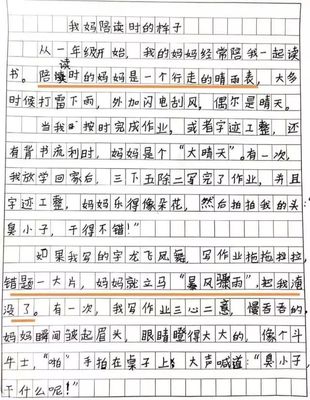 我妈陪读时的样子
从一年级开始，我的妈妈经常陪我一起读
书。陪读时的妈妈是一个行走的晴雨表，大多
时候打雷下雨，外加闪电刮风，偶尔是晴天。
当我按时完成作业，或者字迹工整，还
有背书流利时，妈妈是个“大晴天”。有一次，
我放学回家后，三下五除二写完了作业，并且
字迹工整，妈妈乐得像朵花，然后拍拍我的头：“
臭小子，干得不错！”
如果我写的字龙飞凤舞，写作业拖拖拉拉，
错题一大片，妈妈就立马“暴风骤雨”，把我淹
没了。有一次，我写作业三心二意，慢吞吞的，
妈妈瞬间皱起眉头，眼睛瞪得大大的，像个斗
牛士，“啪”手拍在桌子上，大声喊道：“臭小子，
干什么呢！”